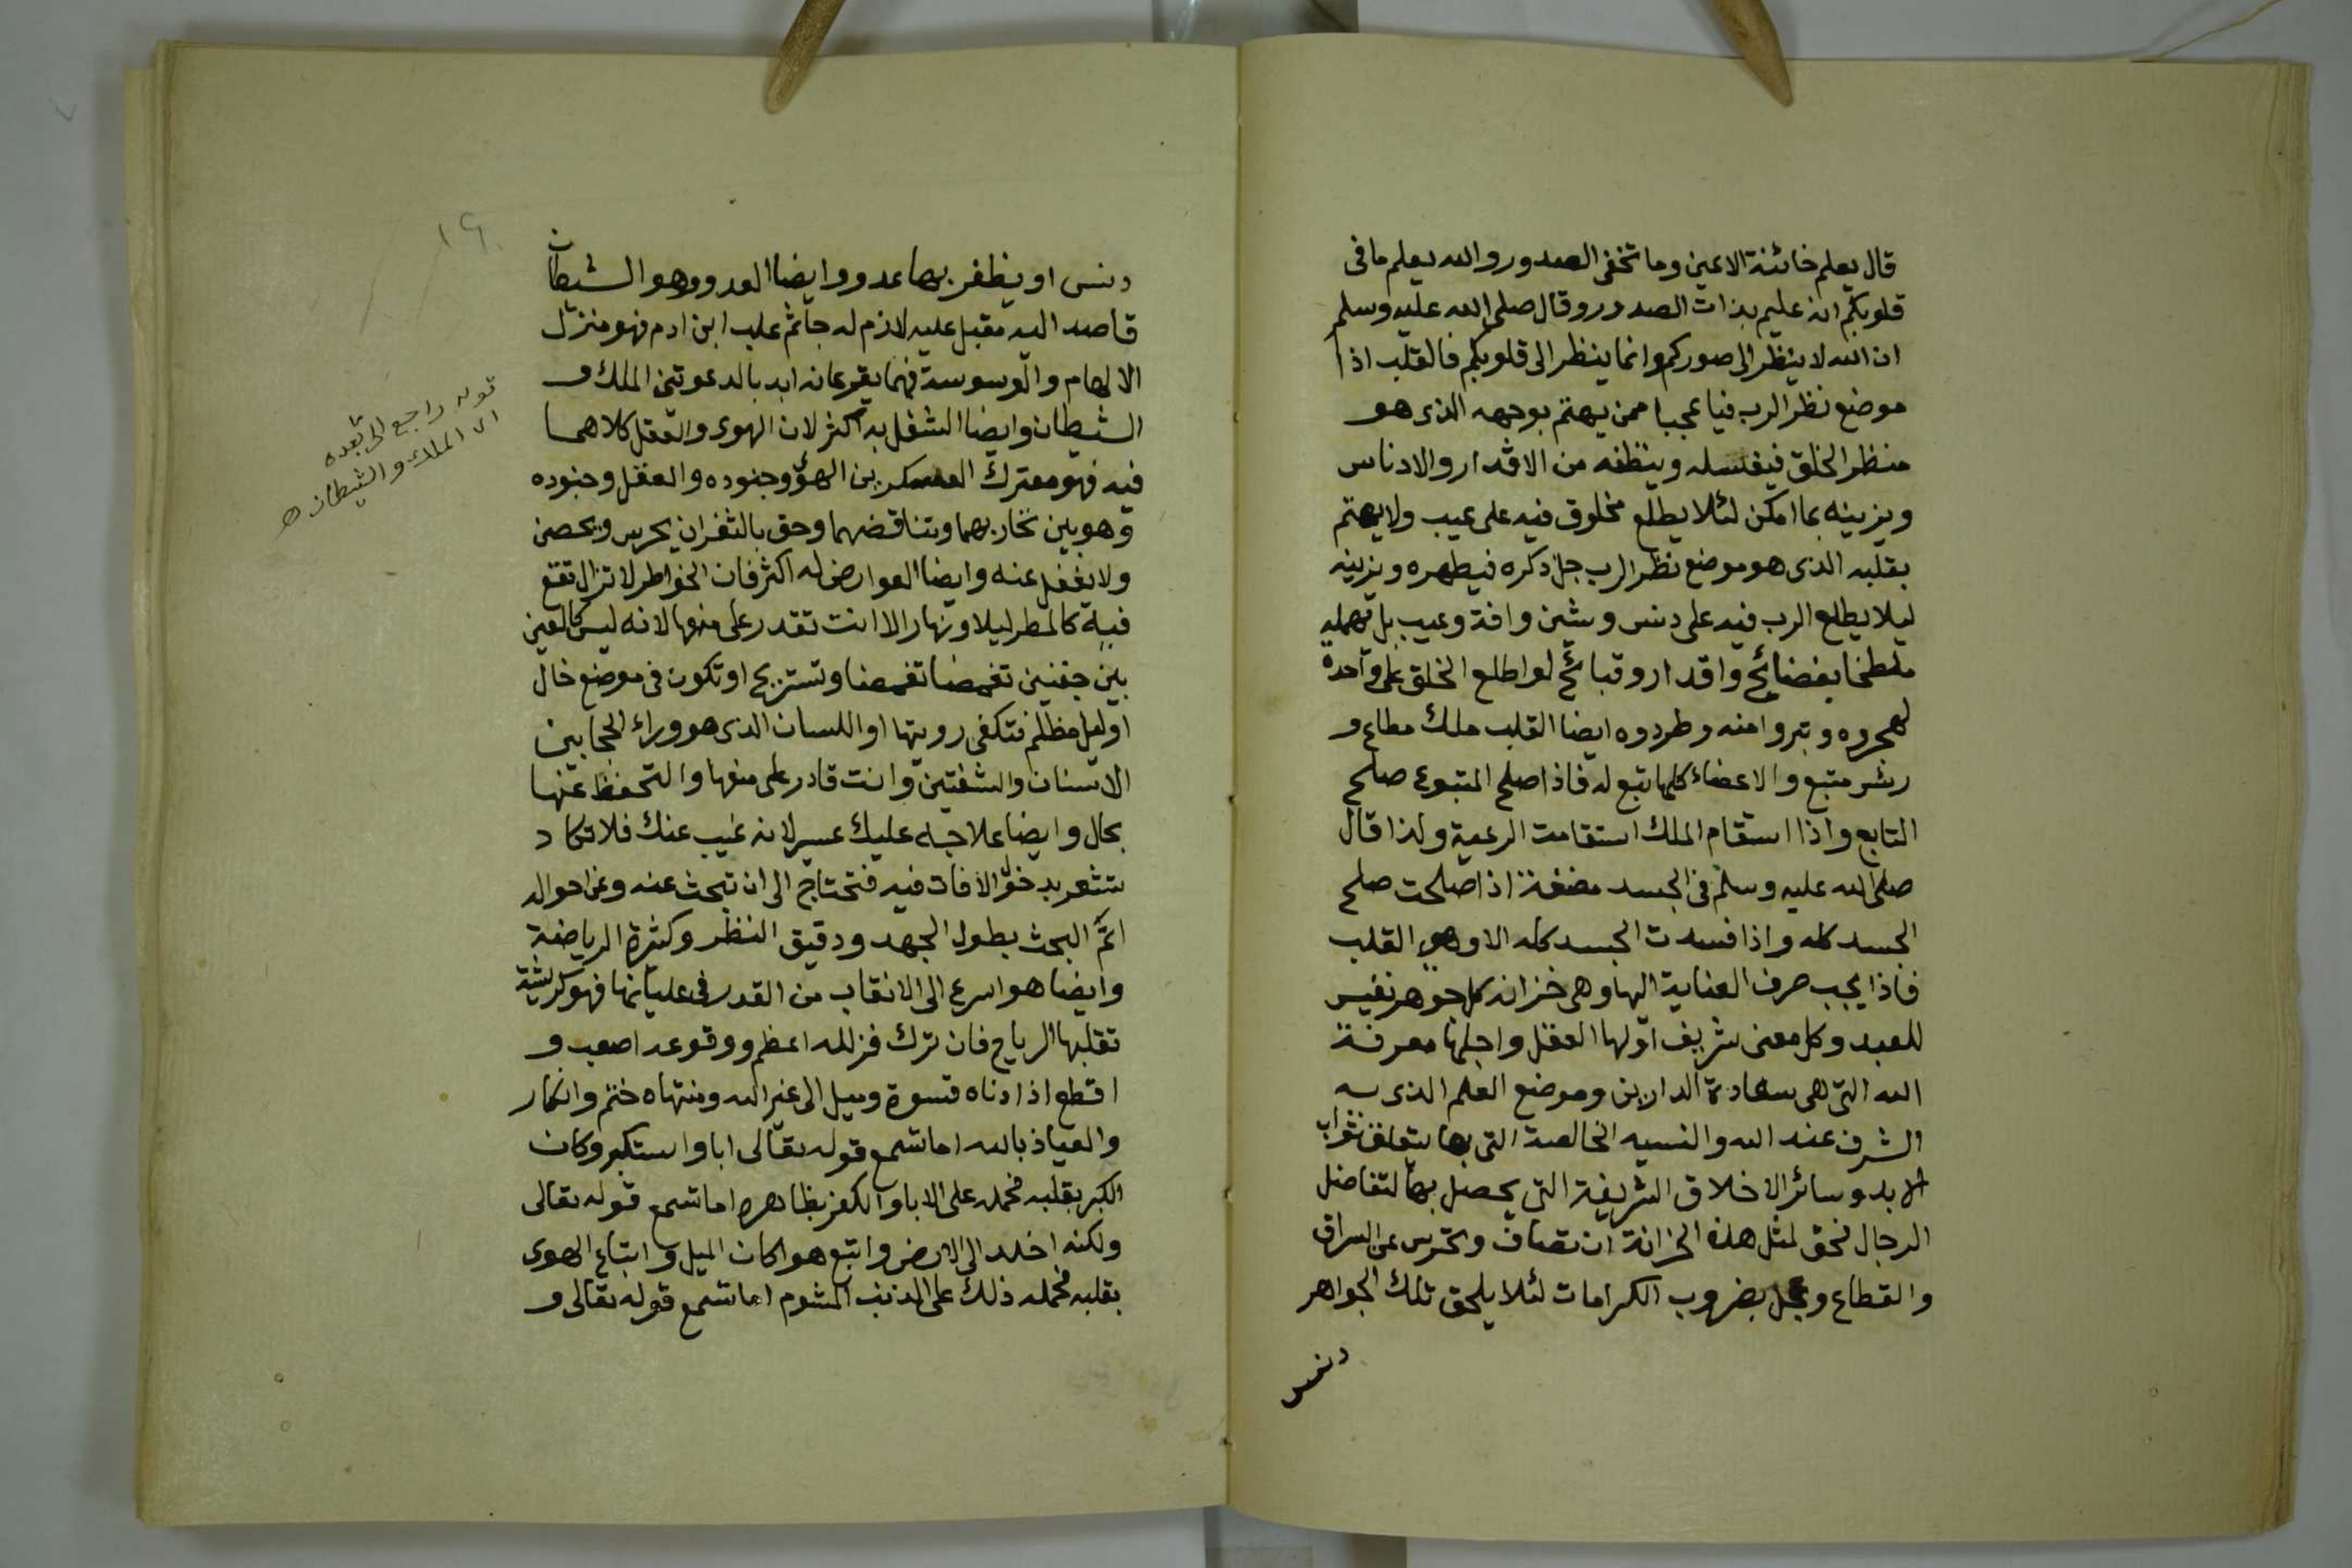 قال يعلم خائنة الاعين وما تخفى الصدور والله يعلم ما فى
قلوبكم انه عليم بذات الصدور وقال صلى الله عليه وسلم
ان الله لا ينظر الى صوركم وانما ينظر الى قلوبكم فالقلب اذا
موضع نظر الرب فيا عجبا ممن يهتم بوجهه الذى هو
منظر الخلق فيغسله وينظفه من الاقدار والادناس
ويزينه بما امكن لئلا يطلع مخلوق فيه على عيب ولا يهتم
بقلبه الذى هو موضع نظر الرب جل ذكره فيطهره ويزينه
ليلا يطلع الرب فيه على دنس وشين وافة وعيب بل يهمله
ملطخا بفضائح واقدار وقبائح لو اطلع الخلق على واحدة
لهجروه وتبروا منه وطردوه ايضا القلب ملك مطاع و
رئس متبع والاعضاء كلها تبع له فاذا صلح المتبوع صلح
التابع واذا استقام الملك استقامت الرعية ولذا قال
صلى الله عليه وسلم فى الجسد مضغة اذا صلحت صلح
الجسد كله واذا فسدت الجسد كله الا وهى القلب
فاذا يجب صرف العناية اليها وهى خزانه كل جوهر نفيس
للعبد وكل معنى شريف اولها العقل واجلها معرفة
الله التى هى سعادة الدارين وموضع العلم الذى به
الشرف عند الله والنسيه الخالصة التى بها يتعلق ثواب
الابد وسائر الاخلاق الشريفة التى يحصل بها لتفاضل
الرجال فحق لمثل هذه الخزانة ان تصان وتحترس عن السراق
والقطاع وتجل بضروب الكرامات لئلا يلحق تلك الجواهر
دنس
١٩
دنس او يظفر بها عدو وايضا العدو وهو الشيطان
قاصد اليه مقبل عليه لازم له جاثم على ابن ادم فهو منزل
الالهام والوسوسة فهما يقرعانه ابدا بالدعوتين الملك و
الشيطان وايضا الشغل به اكثر لان الهوى والعقل كلاهما
فيه فهو معترك العسكرين الهوى وجنوده والعقل وجنوده
وهو بين تحاربهما وتناقضهما وحق بالثغر ان يحرس ويحصن
ولا يغفل عنه وايضا العوارض له اكثر فان الخواطر لا تزال تقع
فيه كالمطر ليلا ونهارا لا انت تقدر على منعها لانه ليس كالعين
بين جفنين تغمضا تغمضا وتستريح او تكون فى موضع خال
او ليل مظلم فتكفى رويتها او اللسان الذى هو وراء الحجابين
الاسنان والشفتين وانت قادر على منعها والتحفظ عنها
بحال وايضا علاجه عليك عسير لانه غيب عنك فلا تكاد
تشعر بدخول الافات فيه فتحتاج الى ان تبحث عنه وعن احواله
اتم البحث بطول الجهد ودقيق النظر وكثرة الرياضة
وايضا هو اسرع الى الانقاب من القدر فى عليانها فهو كريشة
تقلبها الرياح فان ترك فزلله اعظم ووقوعه اصعب و
اقطع اذ ادناه قسوة وميل الى غير الله ومنتهاه ختم وانكار
والعياذ بالله اما تسمع قوله تعالى ابا واستكبر وكان
الكبر بقلبه فحمله على الابا والكفر بظاهره اما تسمع قوله تعالى
ولكنه اخلد الى الارض واتبع هواه كان الميل واتباع الهوى
بقلبه فحمله ذلك على الذنب المشوم اما تسمع قوله تعالى و
قوله راجع الى
اى الملك والشيطان ه